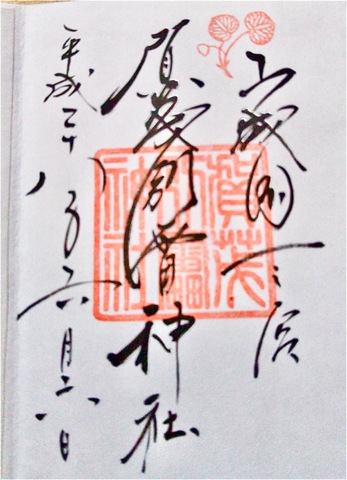 山城国一之宮
賀茂別雷神社
平成二十八年六月六日
賀茂
別雷
神社